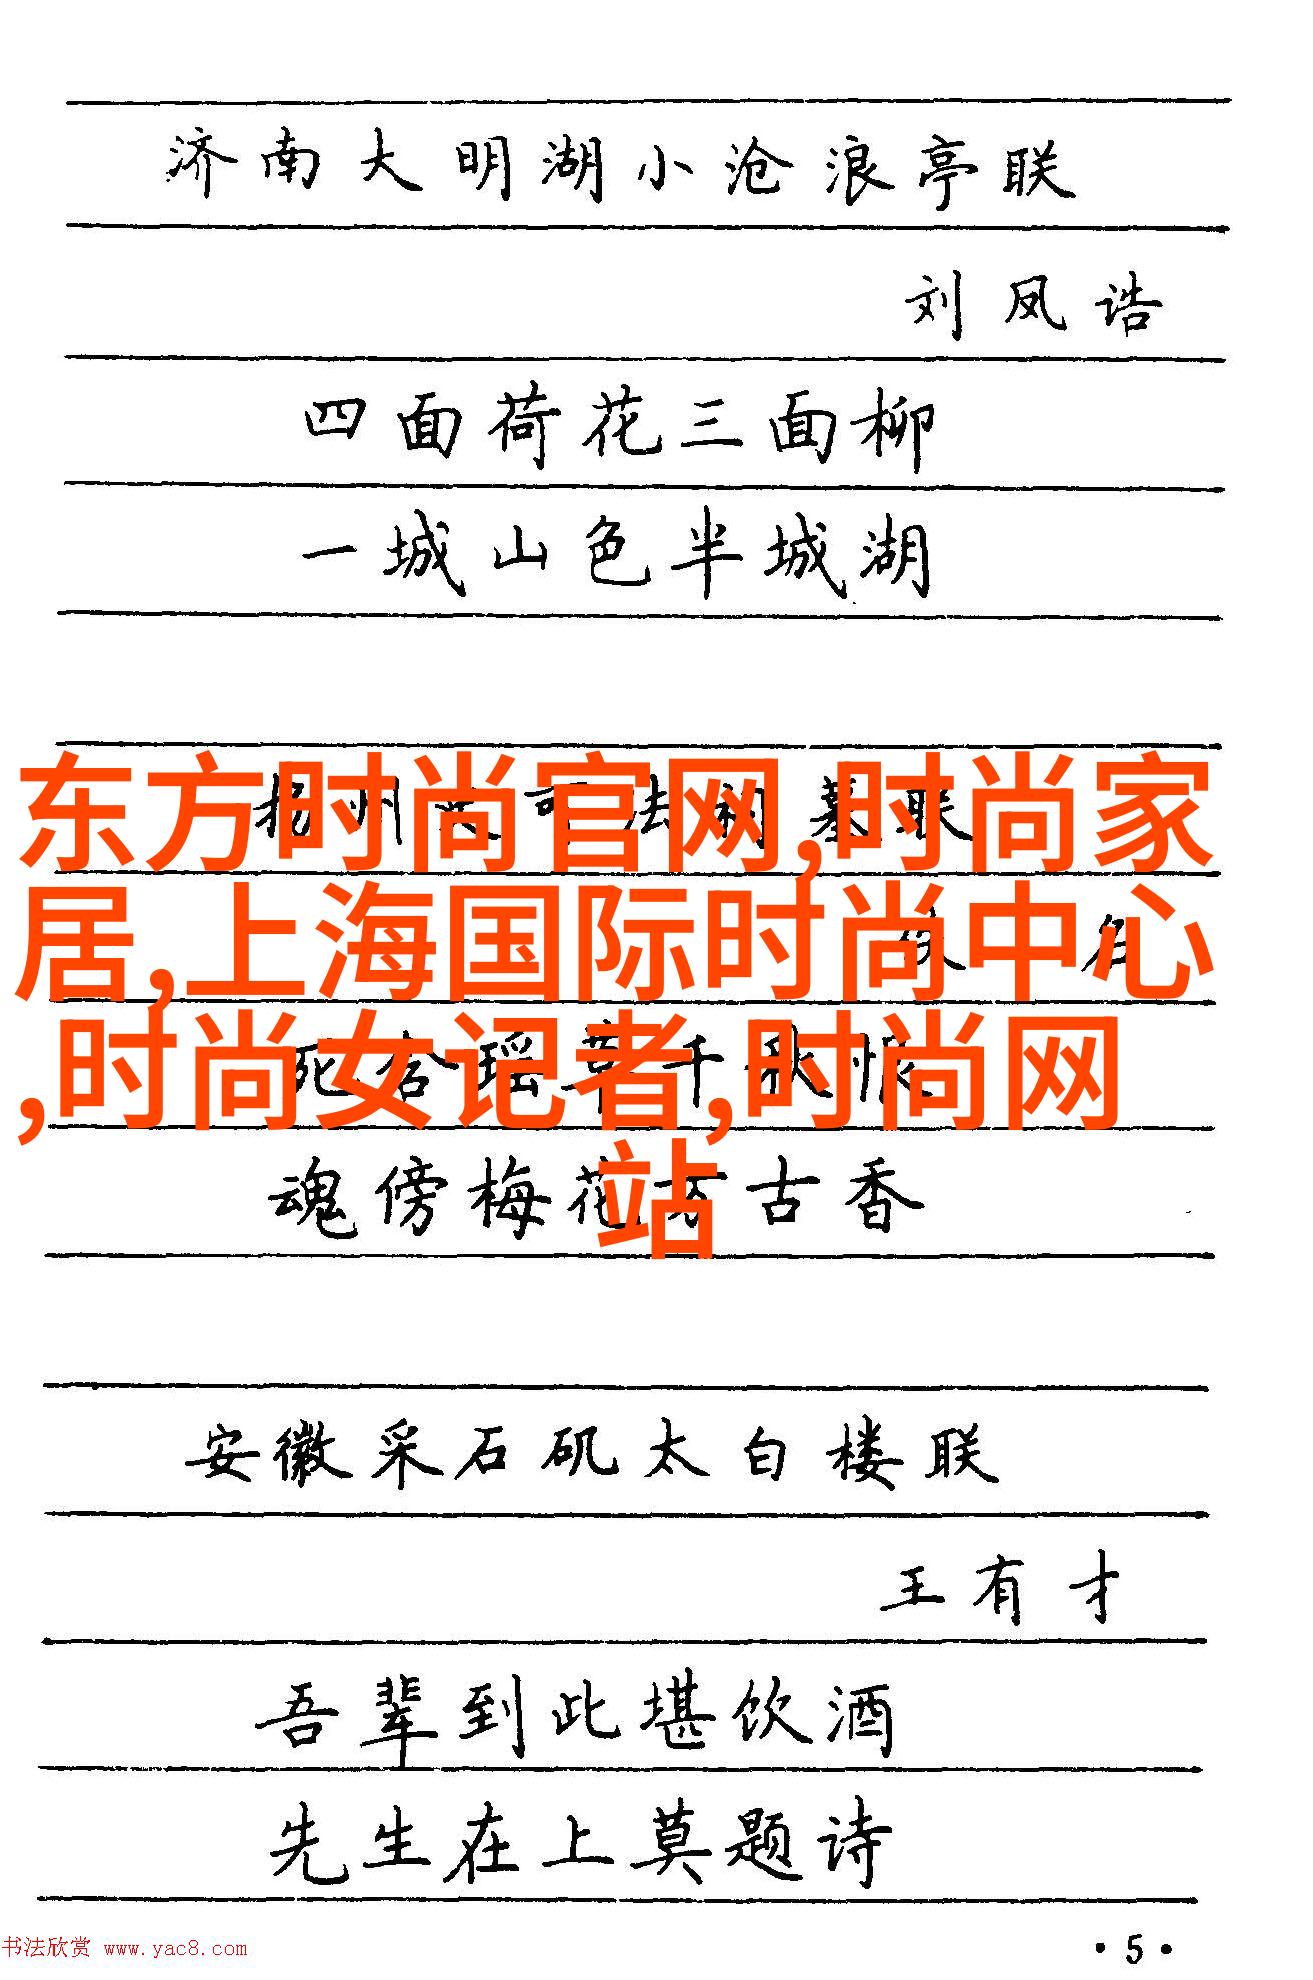 济南大明湖小沧浪亭联
刘凤诰
四面荷花三面柳
一城山色半城湖
扬州史可法祠墓联
东方时尚官网,时尚家
居,上海国际时尚中心
,时尚女记者,时尚网
站
千秋恨
魂傍梅花万古香
安徽采石矶太白楼联
王有才
吾辈到此堪饮酒
先生在上莫题诗
书法欣赏 www.yac8.com
·5·